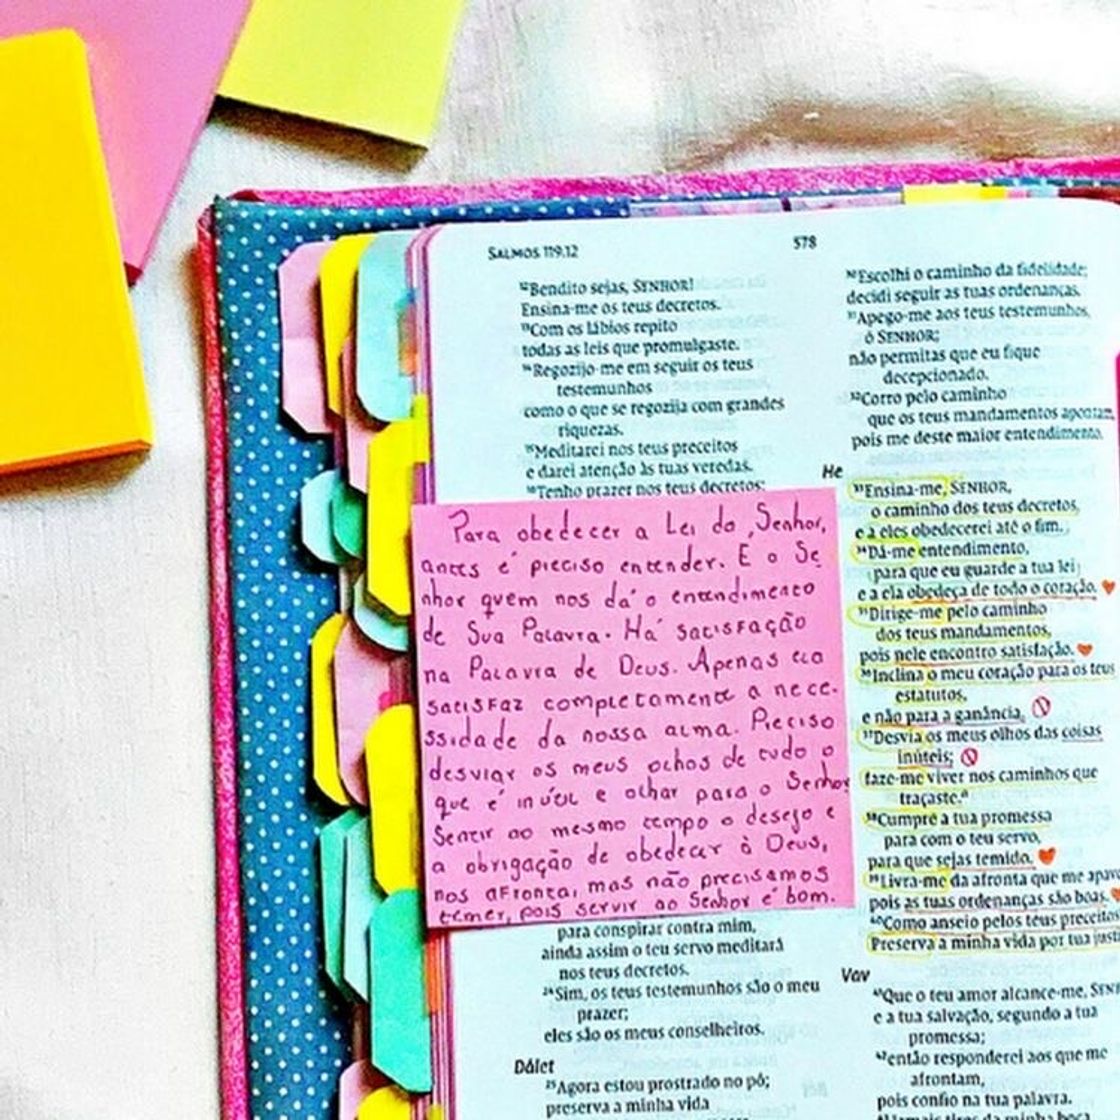 SALMOS 119.12
578
¹²Bendito sejas, SENHOR!
Ensina-me os teus decretos.
¹³Com os lábios repito
todas as leis que promulgaste.
¹⁴Regozijo-me em seguir os teus
testemunhos
como o que se regozija com grandes
riquezas.
¹⁵Meditarei nos teus preceitos
e darei atenção às tuas veredas.
¹⁶Tenho prazer nos teus decretos;
Para obedecer a Lei do Senhor,
antes é preciso entender. E o Se
nhor quem nos dá o entendimento
de Sua Palavra. Há satisfação
na Palavra de Deus. Apenas ela
satisfaz completamente a nece-
ssidade da nossa alma. Preciso
desviar os meus olhos de tudo o
que é inútil e olhar para o Senhor
Sentir ao mesmo tempo o desejo e
a obrigação de obedecer à Deus,
nos afronta, mas não precisamos
temer, pois servir ao Senhor é bom.
para conspirar contra mim,
ainda assim o teu servo meditará
nos teus decretos.
²⁴Sim, os teus testemunhos são o meu
prazer;
eles são os meus conselheiros.
Dálet
²⁵Agora estou prostrado no pó;
preserva a minha vida
³⁰Escolhi o caminho da fidelidade;
decidi seguir as tuas ordenanças.
³¹Apego-me aos teus testemunhos,
ó SENHOR;
não permitas que eu fique
decepcionado.
³²Corro pelo caminho
que os teus mandamentos apontam,
pois me deste maior entendimento.
He
³³Ensina-me, SENHOR,
o caminho dos teus decretos,
e a eles obedecerei até o fim.
³⁴Dá-me entendimento,
para que eu guarde a tua lei
e a ela obedeça de todo o coração.
³⁵Dirige-me pelo caminho
dos teus mandamentos,
pois nele encontro satisfação.
³⁶Inclina o meu coração para os teus
estatutos,
e não para a ganância.
³⁷Desvia os meus olhos das coisas
inúteis;
faze-me viver nos caminhos que
traçaste.ᵃ
³⁸Cumpre a tua promessa
para com o teu servo,
para que sejas temido.
³⁹Livra-me da afronta que me
pois as tuas ordenanças são boas.
⁴⁰Como anseio pelos teus
Preserva a minha vida por tua
Vav
⁴¹Que o teu amor alcance-me,
e a tua salvação, segundo a tua
promessa;
⁴²então responderei aos que me
afrontam,
pois confio na tua palavra.